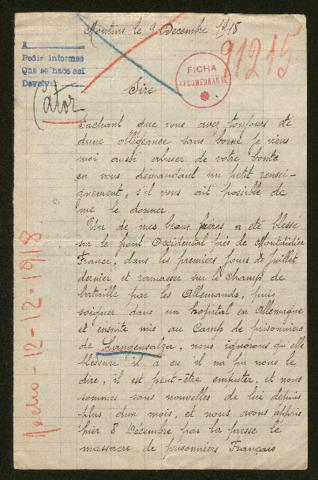 Moutiers le 9 Decembre 1918
A
Pedir informes
Que se hace asi
91215
FICHA
(ator)
Sire
Sachant que vous avez toujours été
d'une obligeance sans borne je viens
moi aussi abuser de votre bonté
en vous demandant un petit rensei-
gnement, s'il vous ait possible de
me le donner.
Un de mes beaux frères a été blessé
sur le front Occidental près de Montdidier
France, dans les premiers jours de juillet
dernier et ramasser sur le champs de
bataille par les Allemands, puis
soigner dans un hospital en Allemagne
et ensuite mis au Camp de prisonniers
de Langensalza, nous ignorons qu'elle
blessure il a eu il na pu nous le
dire, il est peut-être amputer, et nous
sommes sans nouvelles de lui depuis
plus d'un mois, et nous avons appris
hier 8 Décembre par la presse le
massacre de prisonniers Français
Recbio - 12-12-1918